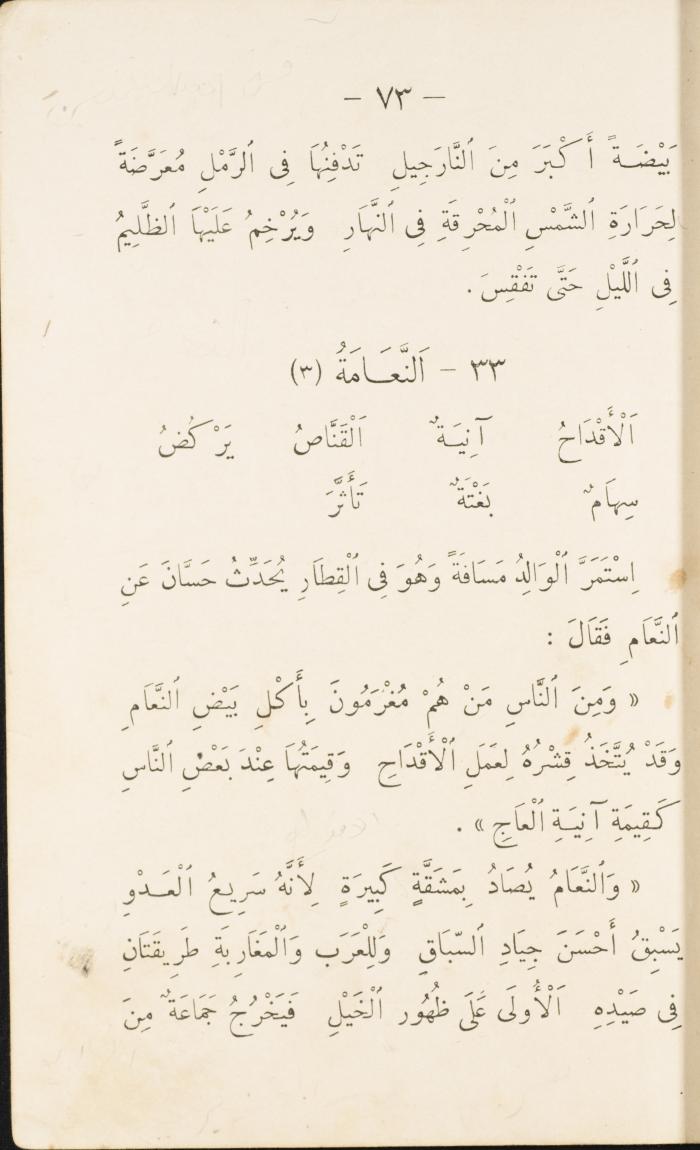 — ٧٣ —
بَيْضَةً أَكْبَرَ مِنَ ٱلنَّارَجِيلِ تَدْفِنُهَا فِى ٱلرَّمْلِ مُعَرَّضَةً
لِحَرَارَةِ ٱلشَّمْسِ ٱلْمُحْرِقَةِ فِى ٱلنَّهَارِ وَيُرْخِمُ عَلَيْهَا ٱلظَّلِيمُ
فِى ٱللَّيْلِ حَتَّى تَفْقِسَ .
٣٣ — اَلنَّعَامَةُ (٣)
اَلْأَقْدَاحُ آنِيَةٌ اَلْقَنَّاصُ يَرْكُضُ
سِهَامٌ بَغْتَةٌ تَأَثَّرَ
اِسْتَمَرَّ ٱلْوَالِدُ مَسَافَةً وَهُوَ فِى ٱلْقِطَارِ يُحَدِّثُ حَسَّانَ عَنِ
ٱلنَّعَامِ فَقَالَ :
« وَمِنَ ٱلنَّاسِ مَنْ هُمْ مُغْرَمُونَ بِأَكْلِ بَيْضِ ٱلنَّعَامِ
وَقَدْ يُتَّخَذُ قِشْرُهُ لِعَمَلِ ٱلْأَقْدَاحِ وَقِيمَتُهَا عِنْدَ بَعْضِ ٱلنَّاسِ
كَقِيمَةِ آنِيَةِ ٱلْعَاجِ » .
« وَٱلنَّعَامُ يُصَادُ بِمَشَقَّةٍ كَبِيرَةٍ لِأَنَّهُ سَرِيعُ ٱلْعَدْوِ
يَسْبِقُ أَحْسَنَ جِيَادِ ٱلسِّبَاقِ وَلِلْعَرَبِ وَٱلْمَغَارِبَةِ طَرِيقَتَانِ
فِى صَيْدِهِ اَلْأُولَى عَلَى ظُهُورِ ٱلْخَيْلِ فَيَخْرُجُ جَمَاعَةٌ مِنَ